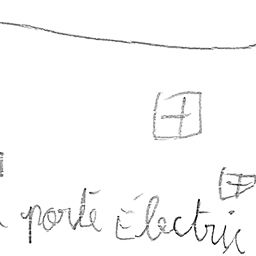 porte Électric